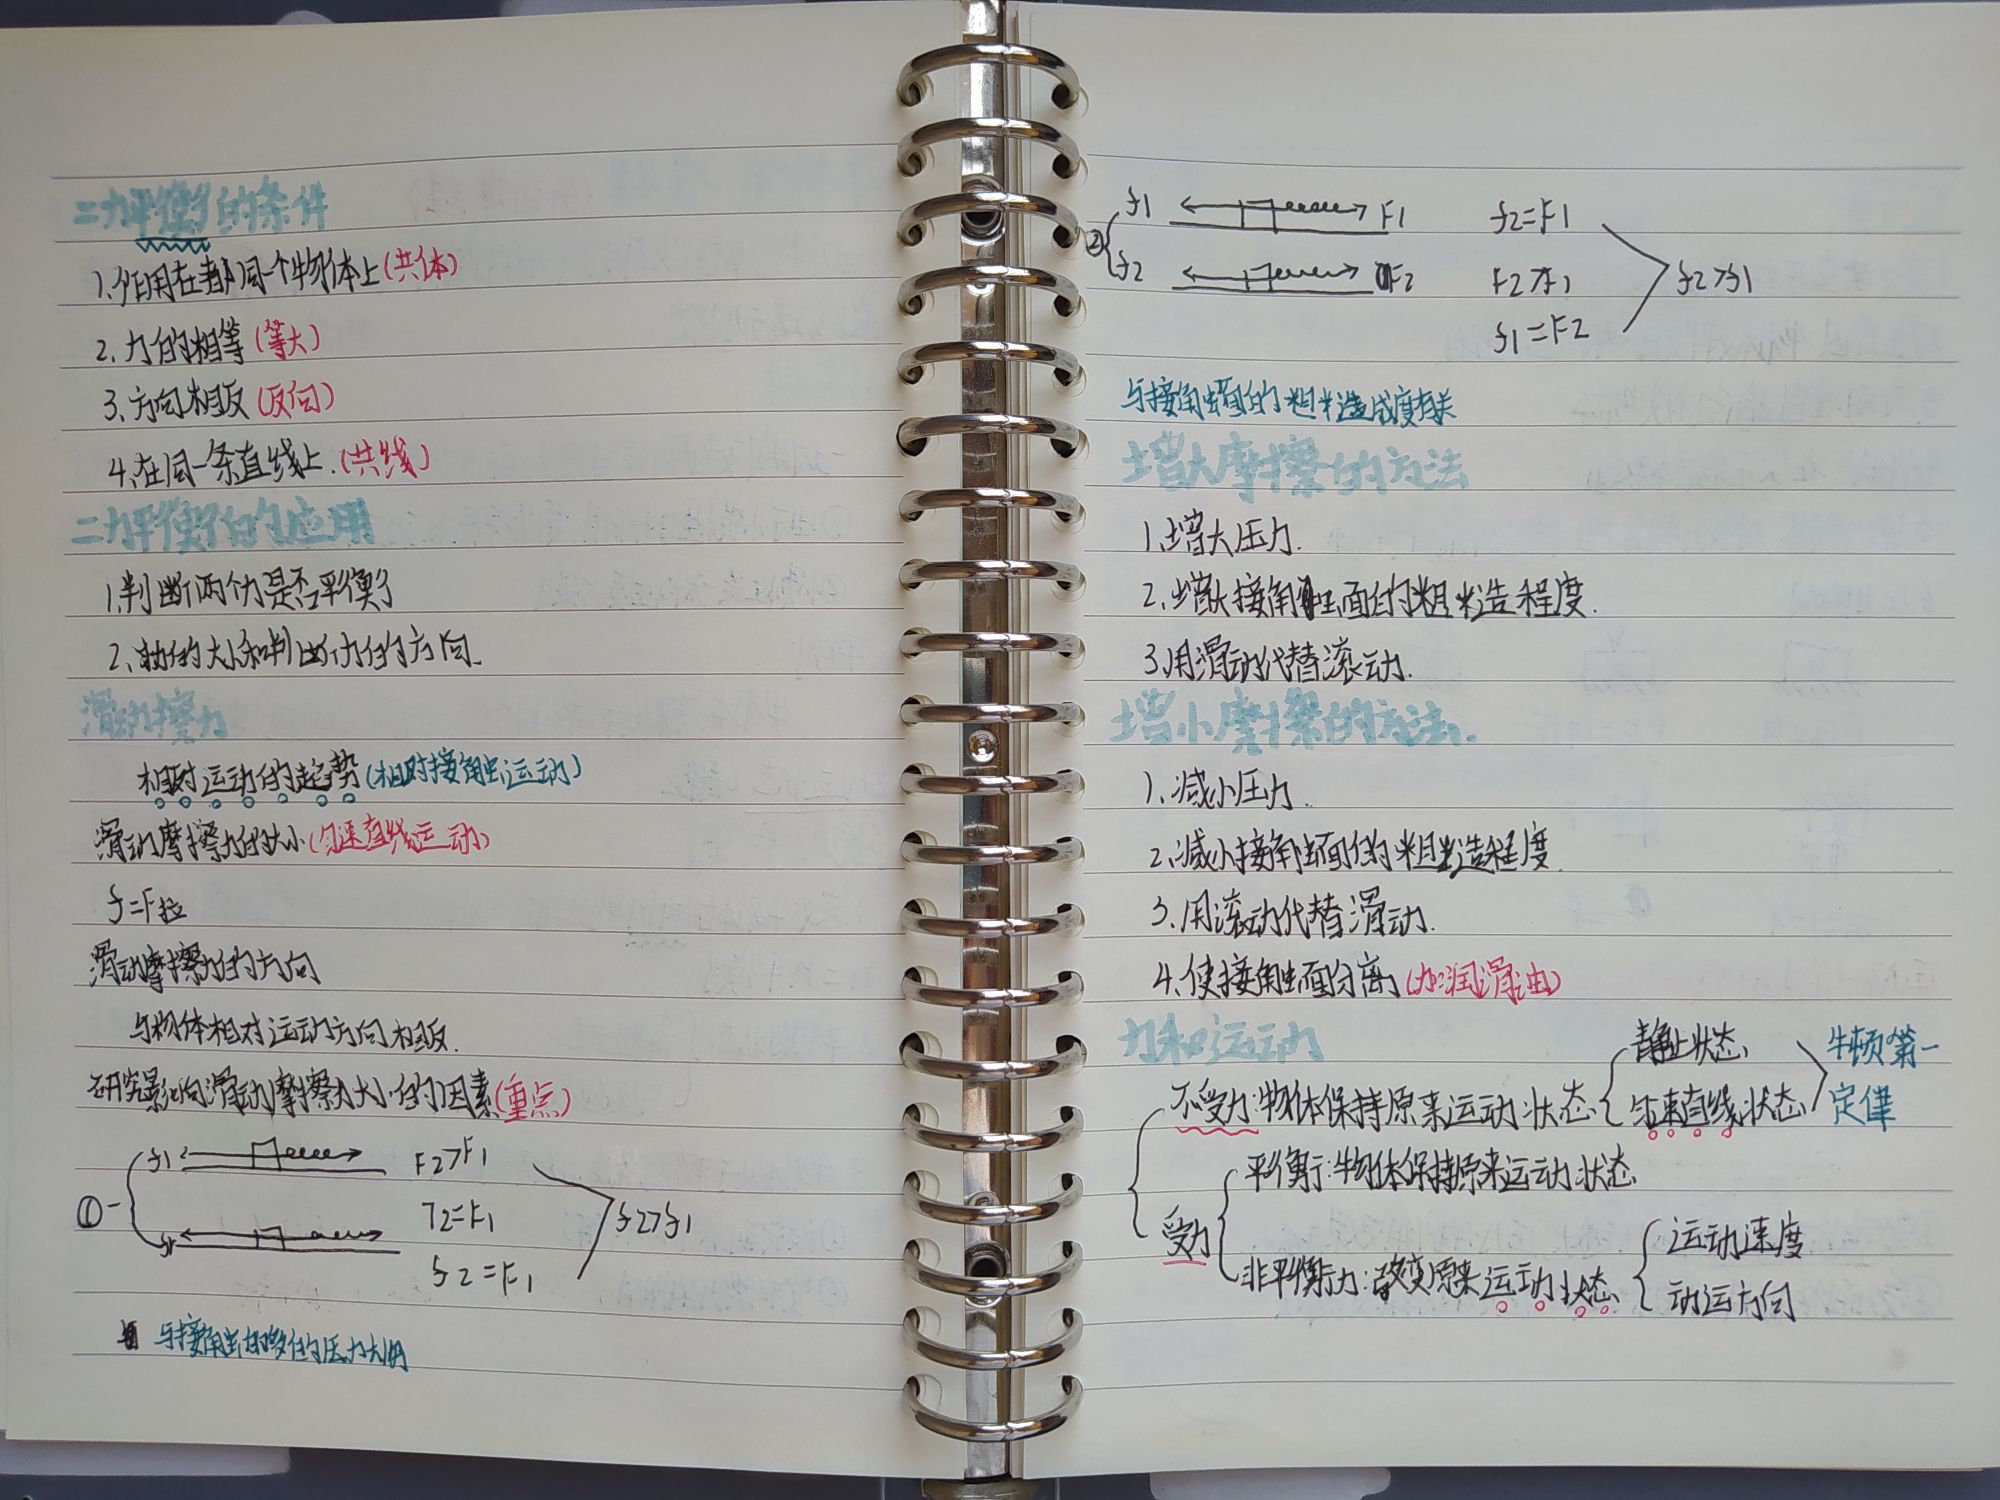 二力平衡的条件
1.作用在都同一个物体上(共体)
2.力的相等(等大)
3.方向相反(反向)
4.在同一条直线上.(共线)
二力平衡的应用
1.判断两个力是否平衡
2.力的大小和判断力的方向.
滑动擦力
相对运动的趋势(相对接触运动)
滑动摩擦力的大小(匀速直线运动)
f=F拉
滑动摩擦力的方向
与物体相对运动方向相反.
研究影响滑动摩擦力大小的因素(重点)
①
f1 F2>F1
=F1
f2=F1
f2>f1
与接触的压力大
②
f1 F1 f2=F1
f2 F2 F2>F1
f1=F2
f2>f1
与接触面的粗糙成度有关
增大摩擦的方法
1.增大压力.
2.增大接触面的粗糙程度.
3.用滑动代替滚动.
增小摩擦的方法.
1.减小压力.
2.减小接触面的粗糙程度.
3.用滚动代替滑动.
4.使接触面分离(加润滑油)
力和运动
不受力:物体保持原来运动状态
静止状态
匀速直线状态
牛顿第一
定律
受力
平衡:物体保持原来运动状态
非平衡力:改变原来运动状态
运动速度
动运方向